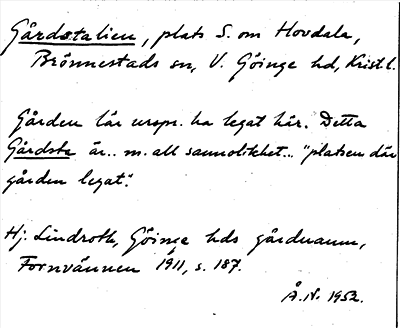 Gårdstalien, plats S. om Hovdala,
Brönnestads sn, V. Göinge hd, Krist. l.
Gården lär urspr. ha legat här. Detta
Gårdsta är.. m. all sannolikhet... "platsen där
gården legat".
Hj. Lindroth, Göinge hds gårdnamn,
Fornvännen 1911, s. 187.
Å. N. 1952.